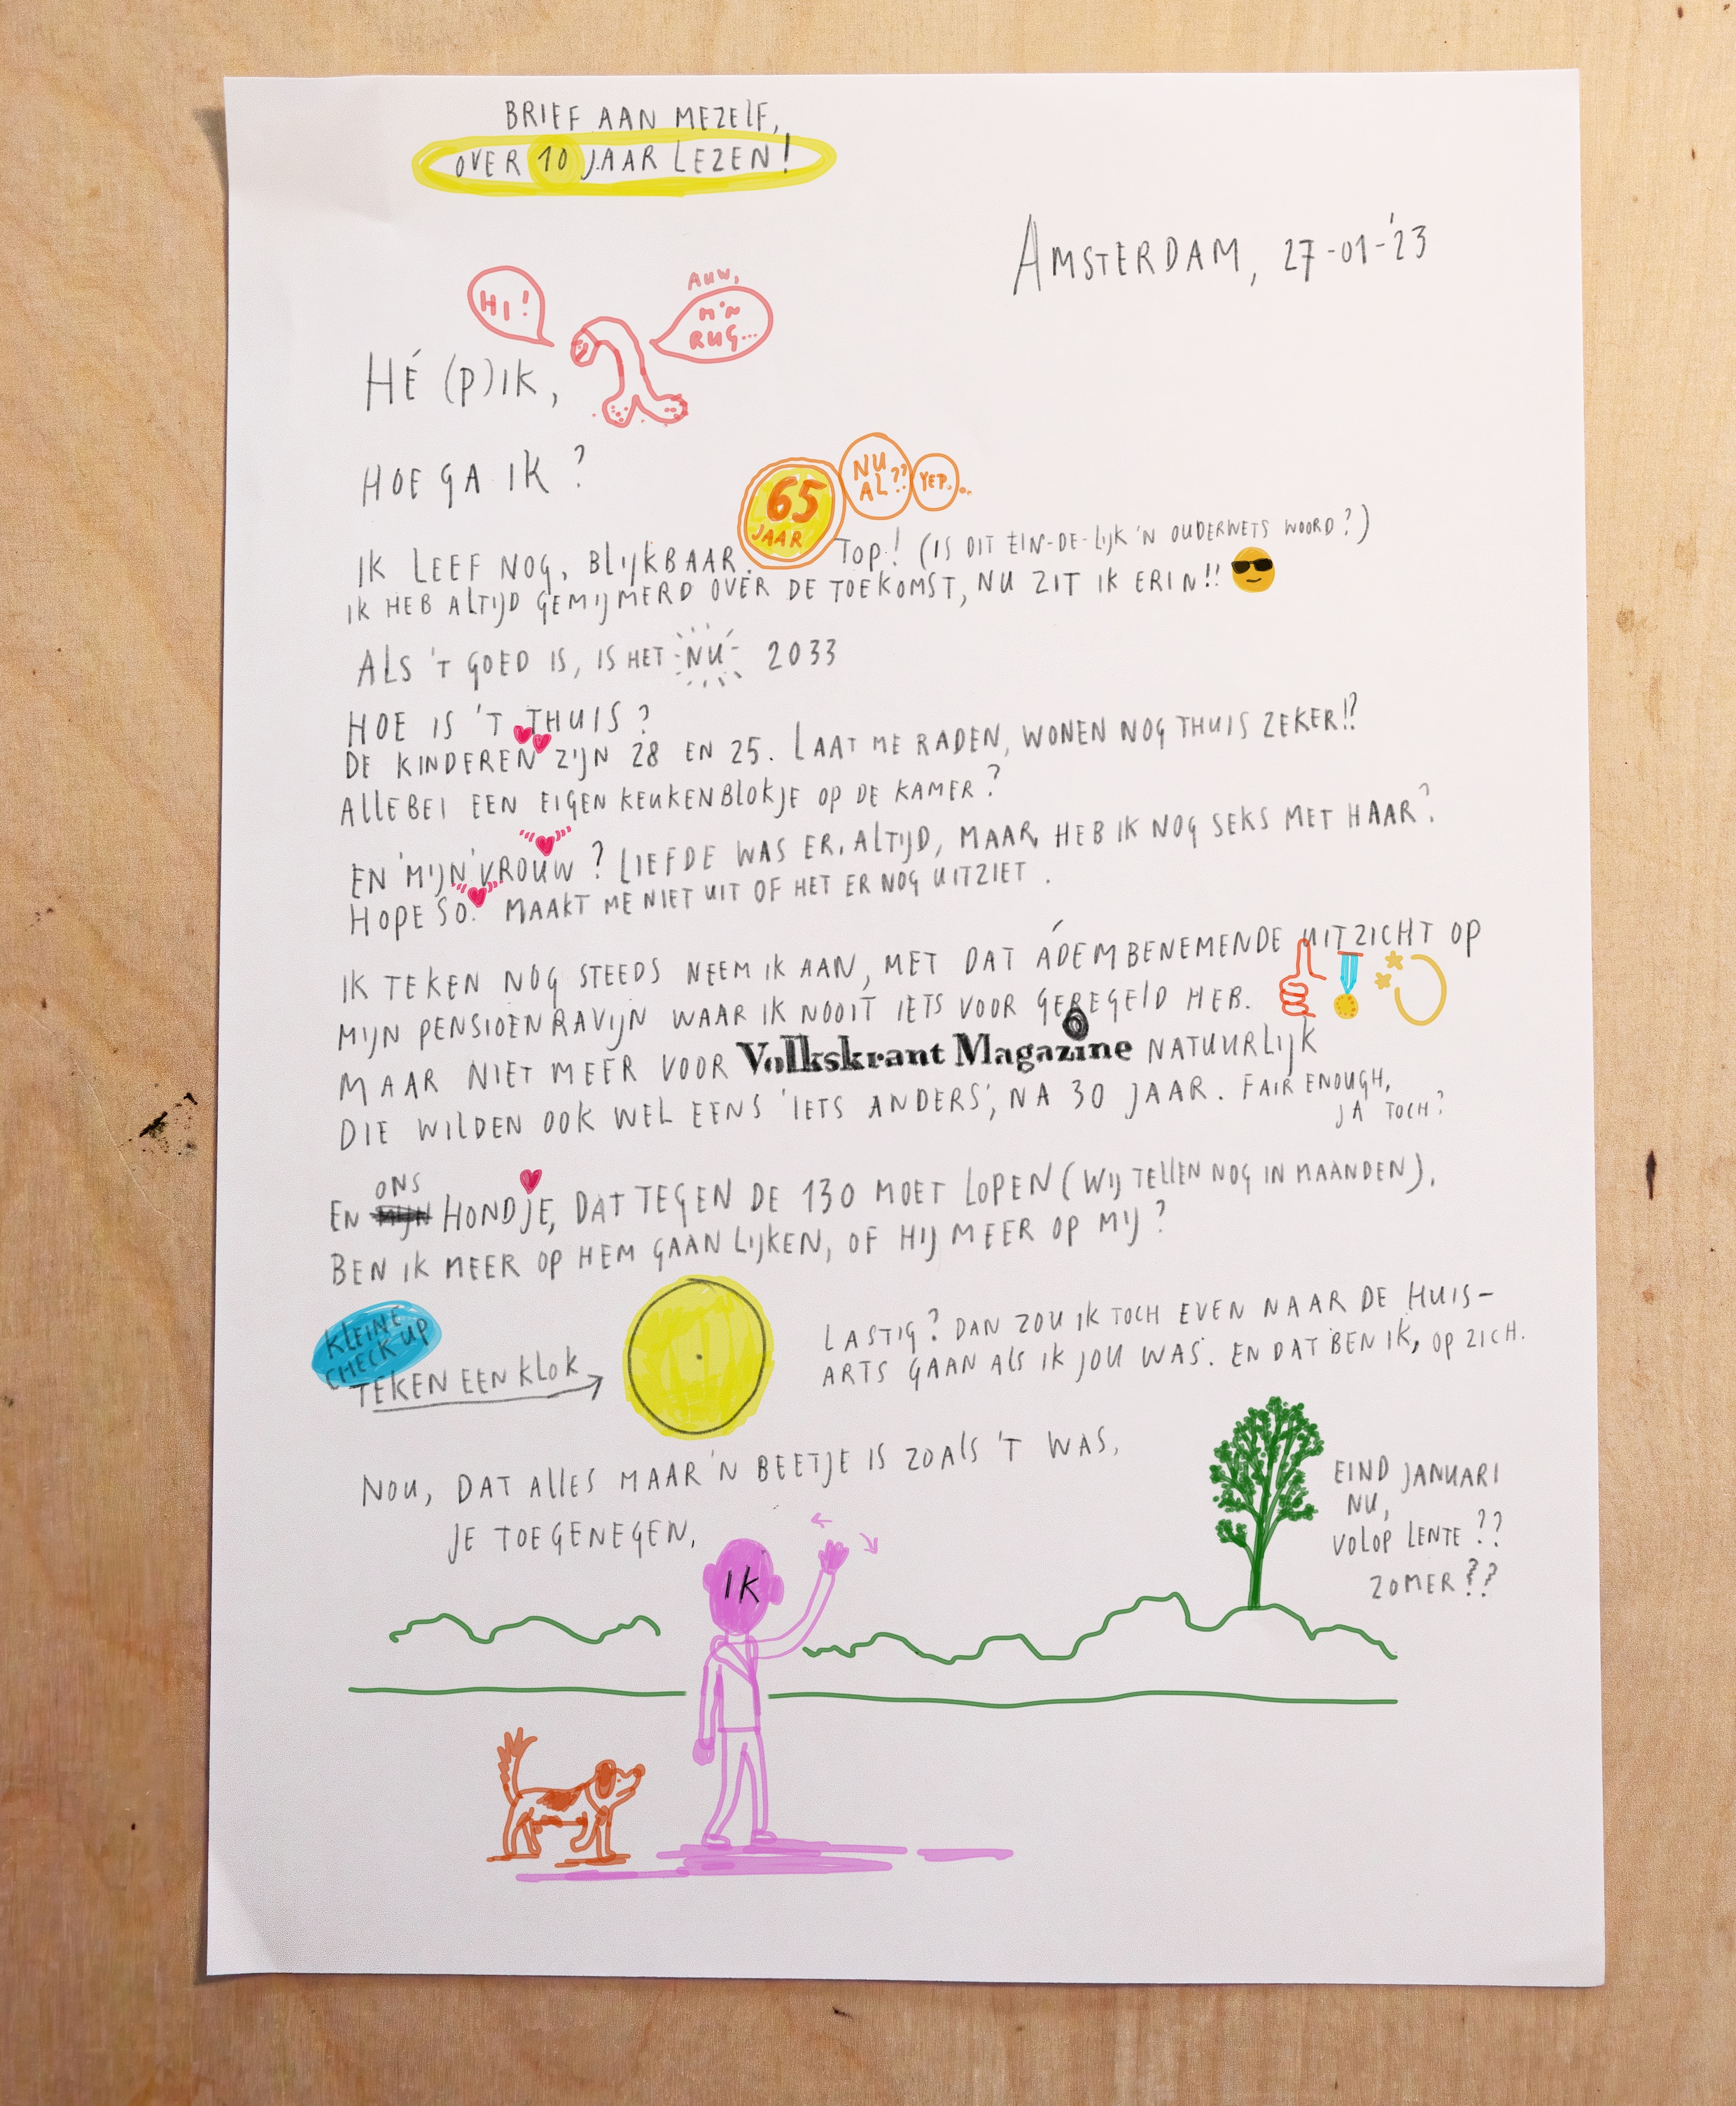 BRIEF AAN MEZELF,
OVER 10 JAAR LEZEN!
AMSTERDAM, 27-01-'23
HI!
AUW,
M'N
RUG...
HÉ (P)IK,
HOE GA IK?
65
JAAR
NU
AL??
YEP...
IK LEEF NOG, BLIJKBAAR. TOP! (IS DIT EIN-DE-LIJK 'N OUDERWETS WOORD?)
IK HEB ALTIJD GEMIJMERD OVER DE TOEKOMST, NU ZIT IK ERIN!!
ALS 'T GOED IS, IS HET NU 2033
HOE IS 'T THUIS?
DE KINDEREN ZIJN 28 EN 25. LAAT ME RADEN, WONEN NOG THUIS ZEKER!?
ALLEBEI EEN EIGEN KEUKENBLOKJE OP DE KAMER?
EN 'MIJN' VROUW? LIEFDE WAS ER, ALTIJD, MAAR, HEB IK NOG SEKS MET HAAR?
HOPE SO. MAAKT ME NIET UIT OF HET ER NOG UITZIET.
IK TEKEN NOG STEEDS NEEM IK AAN, MET DAT ÁDEMBENEMENDE UITZICHT OP
MIJN PENSIOENRAVIJN WAAR IK NOOIT IETS VOOR GEREGELD HEB.
MAAR NIET MEER VOOR Volkskrant Magazine NATUURLIJK
DIE WILDEN OOK WEL EENS 'IETS ANDERS', NA 30 JAAR. FAIR ENOUGH,
JA TOCH?
ONS
EN MIJN HONDJE, DAT TEGEN DE 130 MOET LOPEN (WIJ TELLEN NOG IN MAANDEN).
BEN IK MEER OP HEM GAAN LIJKEN, OF HIJ MEER OP MIJ?
KLEINE
CHECK UP
TEKEN EEN KLOK
LASTIG? DAN ZOU IK TOCH EVEN NAAR DE HUIS-
ARTS GAAN ALS IK JOU WAS. EN DAT BEN IK, OP ZICH.
NOU, DAT ALLES MAAR 'N BEETJE IS ZOALS 'T WAS,
JE TOEGENEGEN,
IK
EIND JANUARI
NU,
VOLOP LENTE??
ZOMER??